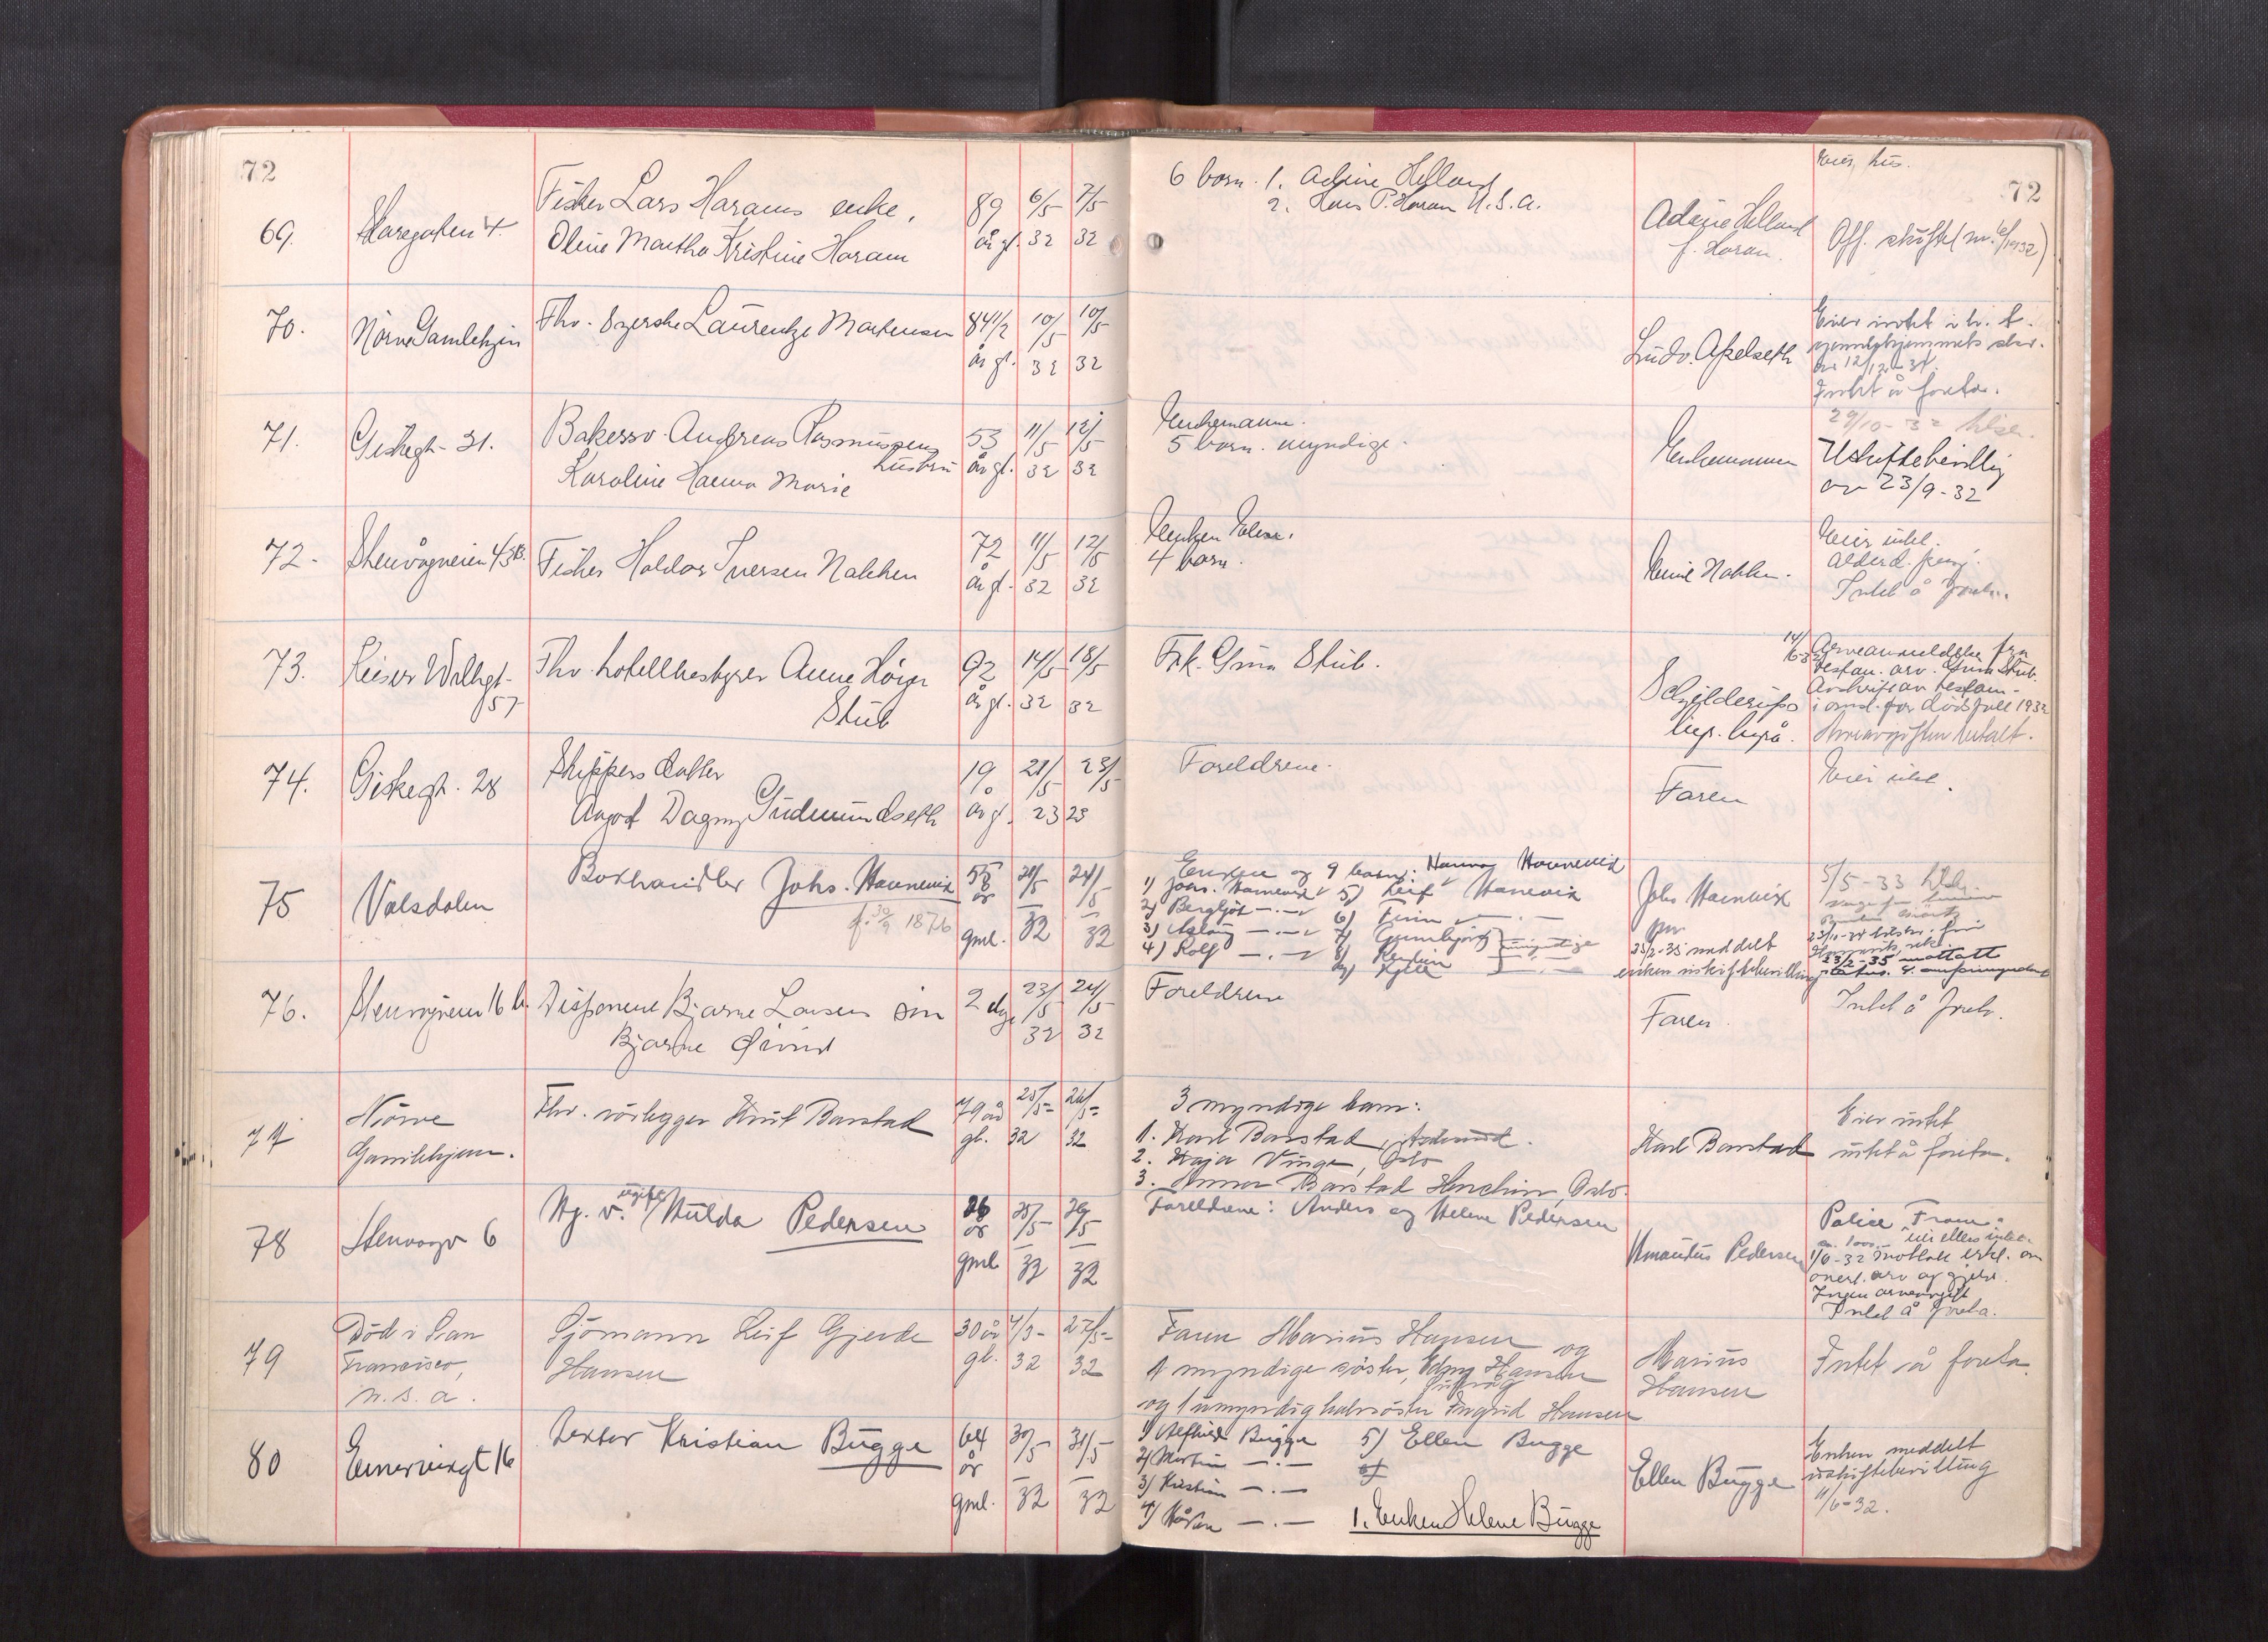 72
72
69.
Fisker Lars Harams enke,
Oline Martha Kristine Haram
89
år gl.
6/5
32
7/5
32
6 barn. 1. Adine Helland
2. Hans P. Haram U.S.A.
Adine Helland
f. Haram.
Eier hus.
Off. skifte (nr. 6/1932)
70.
Nørve Gamlehjem
Fhv. Laurentze Martensen
84 1/2
år gl.
10/5
32
10/5
32
Ludv. Akselseth
Eier intet
12/12-31.
Intet å foreta.
71.
Giskegt. 31.
Bakersv. Andreas Rasmussens
hustru
Karoline Hanna Marie
53
år gl.
11/5
32
12/5
32
Enkemann.
5 barn. myndige.
Enkemannen
29/10-32
Uskiftebevillig
av 23/9-32
72.
Stenvågveien 43B.
Fisker Haldor Iversen Nakken
72
år gl.
11/5
32
12/5
32
Enken
4 barn.
Nakken.
Eier intet.
Intet å foreta.
73.
Keiser Wilhgt.
57
Fhv. hotellbestyrer Anne
Stub
92
år gl.
14/5
32
18/5
32
Frk. Gina Stub.
Schjelderups
begr. byrå.
Arveanmeldelse fra
testam. arv. Gina Stub.
Avskrift av testam.
i omsl. for dødsfall 1932
Arveavgiften betalt.
74.
Giskegt. 28
Skippers datter
Dagny Gudmundseth
19
år gl.
21/5
23
23/5
23
Foreldrene.
Faren
Eier intet.
75
Volsdalen
Bokhandler Johs. Hannevik
f. 30/9 1876
55
år
gml.
21/5
32
24/5
32
Enken og 9 barn: Hanna Hannevik
1) Johs. Hannevik 5) Leif Hannevik
2) Bergljot —.— 6) Finn —.—
3) Aslaug —.— 7) Gunnbjørg umyndige
4) Rolf —.— 8) Kerstin
9) Kjell —.—
Johs Hannevik
jnr
23/2-35 meddelt
enken uskiftebevilling
5/5-33
23/2-35 mottatt
76.
Stenvågveien 16 b.
Disponent Bjarne Larsens sønn
Bjarne Øivind
2 dg.
23/5
32
24/5
32
Foreldrene
Faren.
Intet å foreta.
77
Nørve
Gamlehjem.
Fhv. rørlegger Knut Barstad
79 år
gl.
25/5-
32
26/5-
32
3 myndige barn:
1. Karl Barstad,
2. Kaja Vinge, Oslo
3. Anna Barstad Oslo.
Karl Barstad
Eier intet
intet å foreta.
78
Stenvågv 6
ugifte
Hulda Pedersen
26
år
gml
25/5
32
29/5
32
Foreldrene: Anders og Helene Pedersen
Amandus Pedersen
Police "Fram"
1000.- eier ellers intet.
1/6-32 Mottatt erkl. om
overt. arv og gjeld.
Ingen arveavgift
Intet å foreta.
79
Död i San
Francisco,
U.S.A.
Sjömann Leif Gjerde
Hansen
30 år
gl.
4/3-
32
27/5-
32
Faren Marius Hansen og
1 myndige søster, Hansen
og 1 umyndig halvsøster Ingrid Hansen
Marius
Hansen
Intet å foreta.
80
Lektor Kristian Bugge
64
år
gml.
30/5
32
31/5
32
1) Alfhild Bugge 5) Ellen Bugge
2) Martin —.— 6)
3) Kristian —.—
4) Håkon —.— 1. Enken Helene Bugge
Ellen Bugge
Enken meddelt
uskiftebevilling
11/6-32.